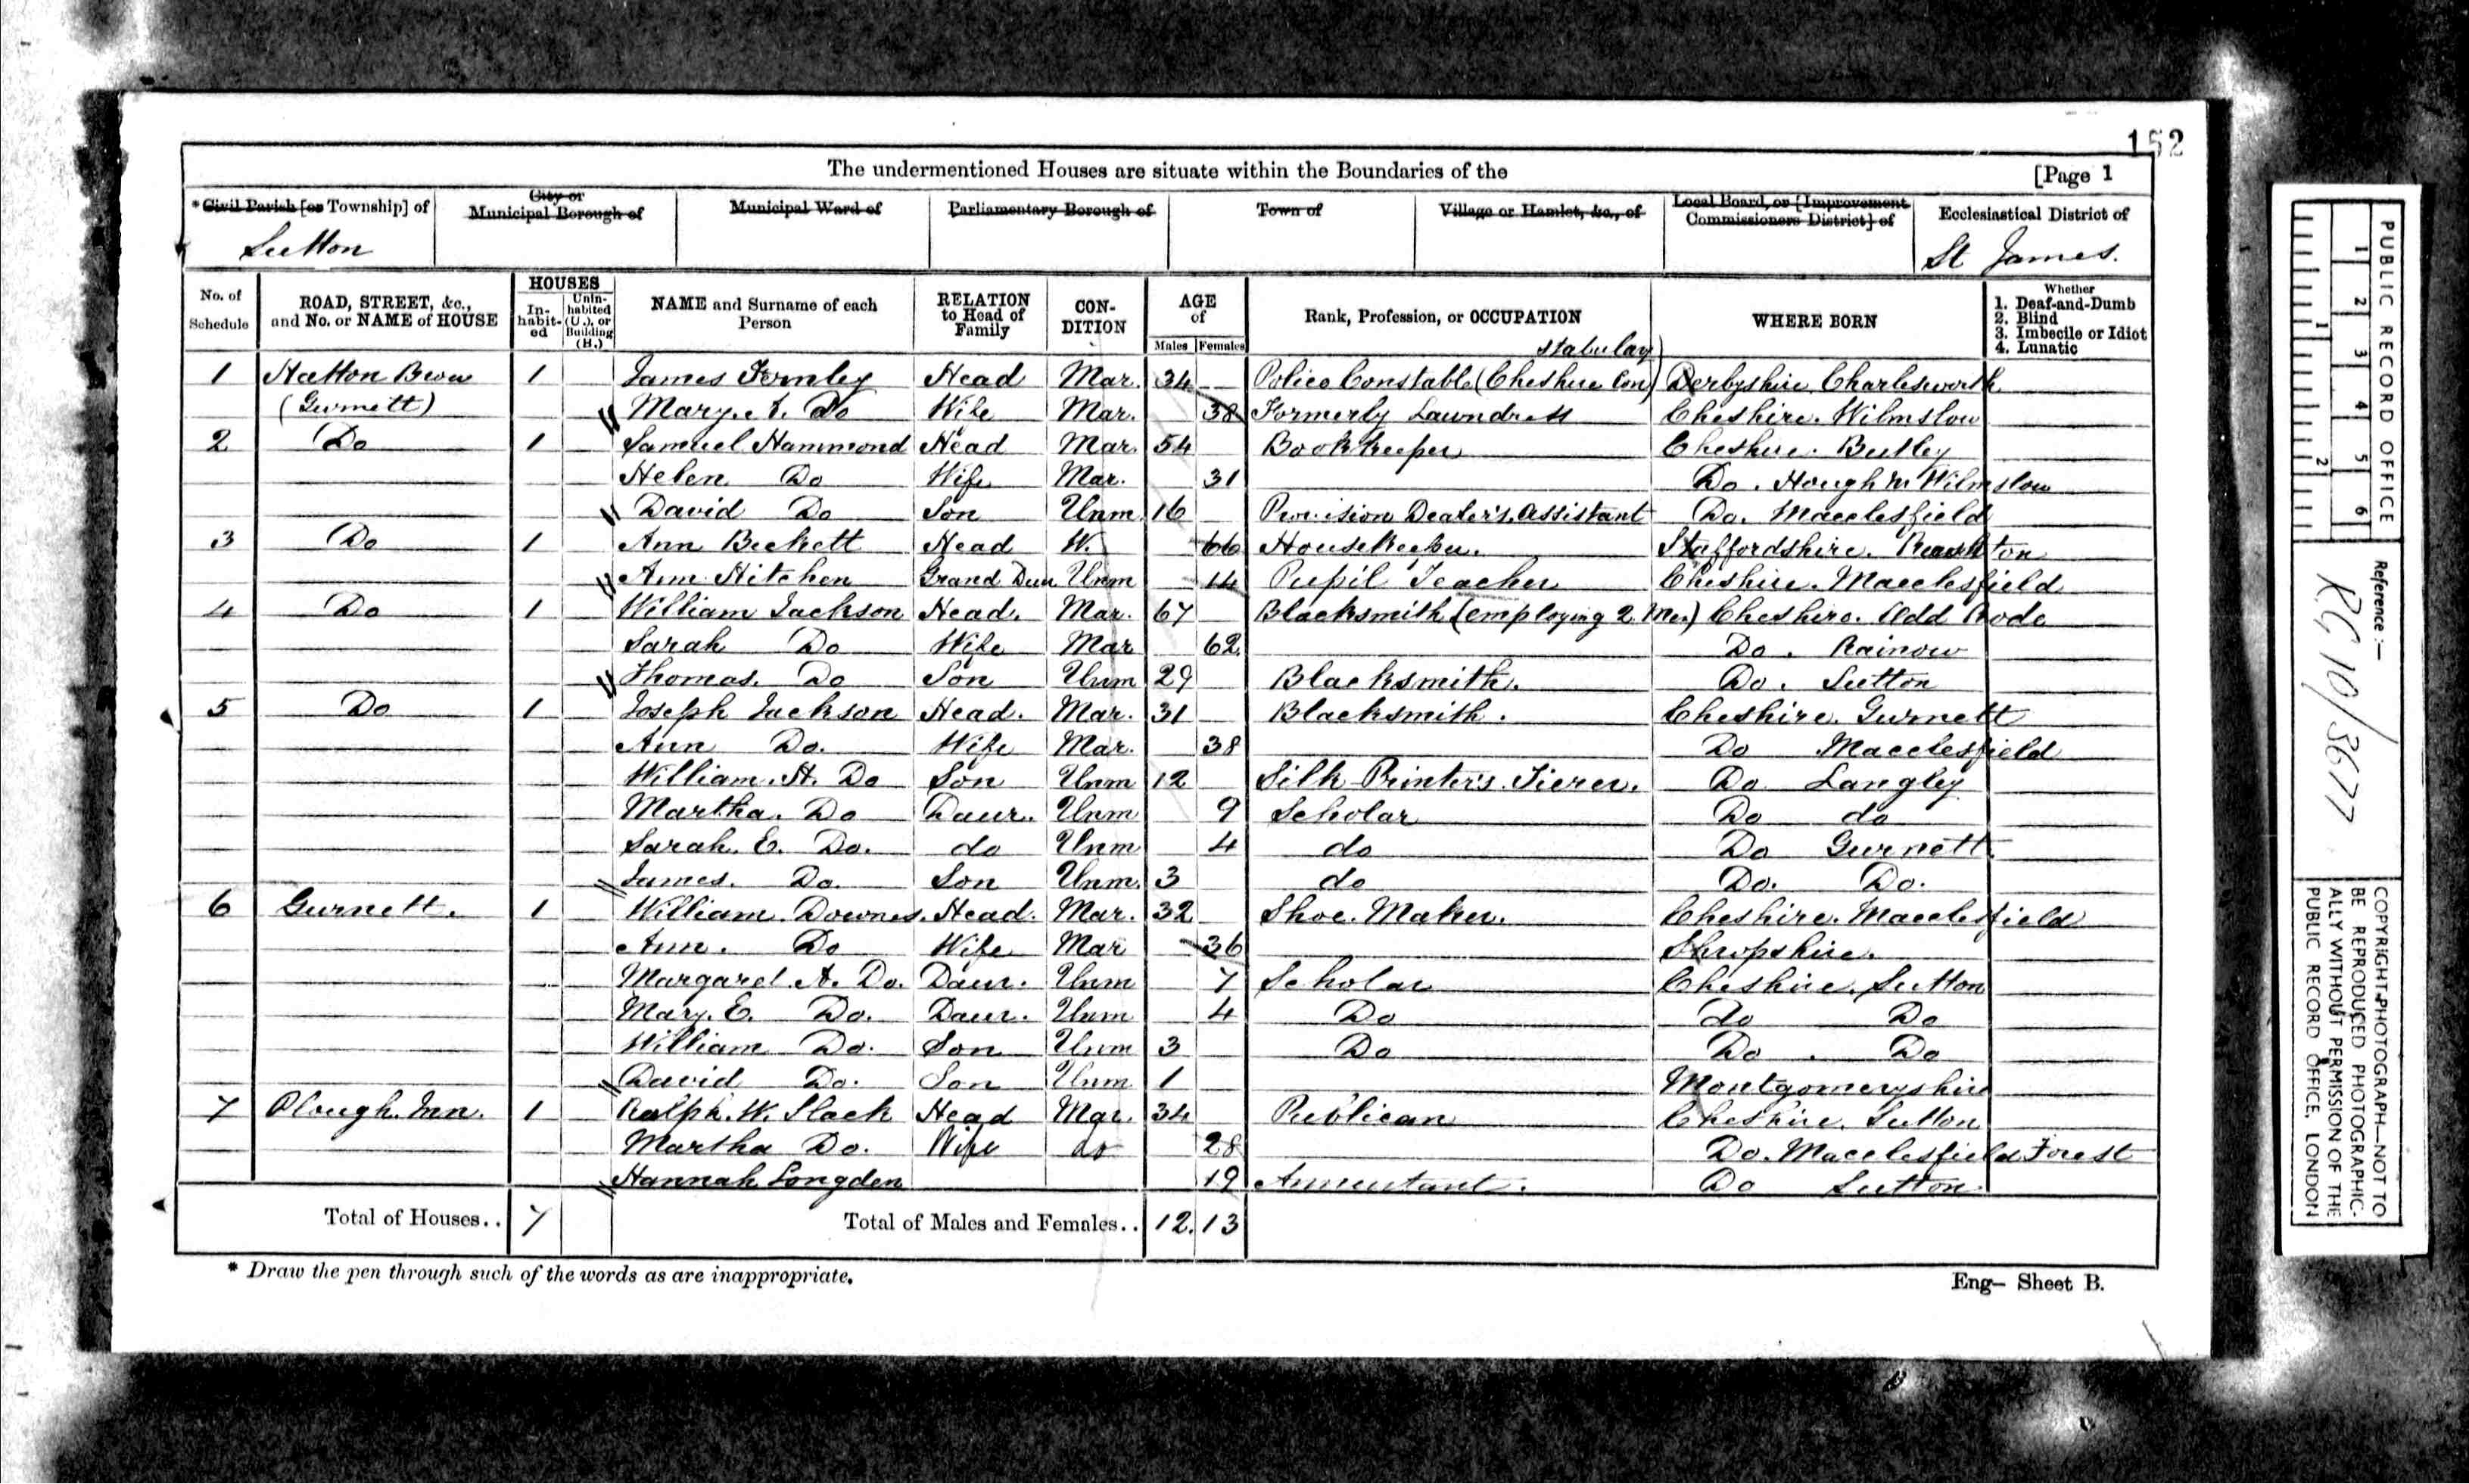 152
The undermentioned Houses are situate within the Boundaries of the [Page 1
*Civil Parish [or Township] of City or Municipal Borough of Municipal Ward of Parliamentary Borough of Town of Village or Hamlet, &c., of Local Board, or [Improvement Commissioners District] of Ecclesiastical District of
Sutton St James.
No. of Schedule ROAD, STREET, &c., and No. or NAME of HOUSE HOUSES In-habit-ed Unin-habited (U.), or Building (B.) NAME and Surname of each Person RELATION to Head of Family CON-DITION AGE of Males Females Rank, Profession, or OCCUPATION WHERE BORN Whether 1. Deaf-and-Dumb 2. Blind 3. Imbecile or Idiot 4. Lunatic
stabulary)
1 Hatton Brow 1 James Fernley Head Mar. 34 Police Constable (Cheshire Con) Derbyshire. Charlesworth
(Gurnett) Mary. A. Do Wife Mar. 38 Formerly Laundress Cheshire. Wilmslow
2 Do 1 Samuel Hammond Head Mar. 54 Bookkeeper Cheshire. Butley
Helen Do Wife Mar. 31 Do. Hough Nr Wilmslow
David Do Son Unm 16 Provision Dealer's Assistant Do. Macclesfield
3 Do 1 Ann Beckett Head W. 66 Housekeeper. Staffordshire.
Ann Hitchen Grand Daur Unm 14 Pupil Teacher Cheshire. Macclesfield
4 Do 1 William Jackson Head. Mar. 67 Blacksmith (employing 2 Men) Cheshire. Odd Rode
Sarah Do Wife Mar 62 Do. Rainow
Thomas. Do Son Unm 29 Blacksmith. Do. Sutton
5 Do 1 Joseph Jackson Head. Mar. 31 Blacksmith. Cheshire. Gurnett
Ann Do. Wife Mar. 38 Do Macclesfield
William. H. Do Son Unm 12 Silk Printer's Tierer. Do Langley
Martha. Do Daur. Unm 9 Scholar Do do
Sarah. E. Do. do Unm 4 do Do Gurnett.
James. Do. Son Unm. 3 do Do. Do.
6 Gurnett. 1 William. Downes. Head. Mar. 32 Shoe. Maker. Cheshire. Macclesfield
Ann. Do Wife Mar 36 Shropshire.
Margaret. A. Do. Daur. Unm 7 Scholar Cheshire. Sutton
Mary. E. Do. Daur. Unm 4 Do do Do
William Do. Son Unm 3 Do Do. Do
David Do. Son Unm 1 Montgomeryshire
7 Plough. Inn. 1 Ralph. W. Slack Head Mar. 34 Publican Cheshire. Sutton
Martha Do. Wife do 28 Do. Macclesfield Forest
Hannah Longden 19 Do Sutton
Total of Houses.. 7 Total of Males and Females.. 12. 13
* Draw the pen through such of the words as are inappropriate. Eng— Sheet B.
PUBLIC RECORD OFFICE
1 2 3 4 5 6
1 2
Reference :—
RG 10/3677
COPYRIGHT PHOTOGRAPH—NOT TO
BE REPRODUCED PHOTOGRAPHIC-
ALLY WITHOUT PERMISSION OF THE
PUBLIC RECORD OFFICE, LONDON